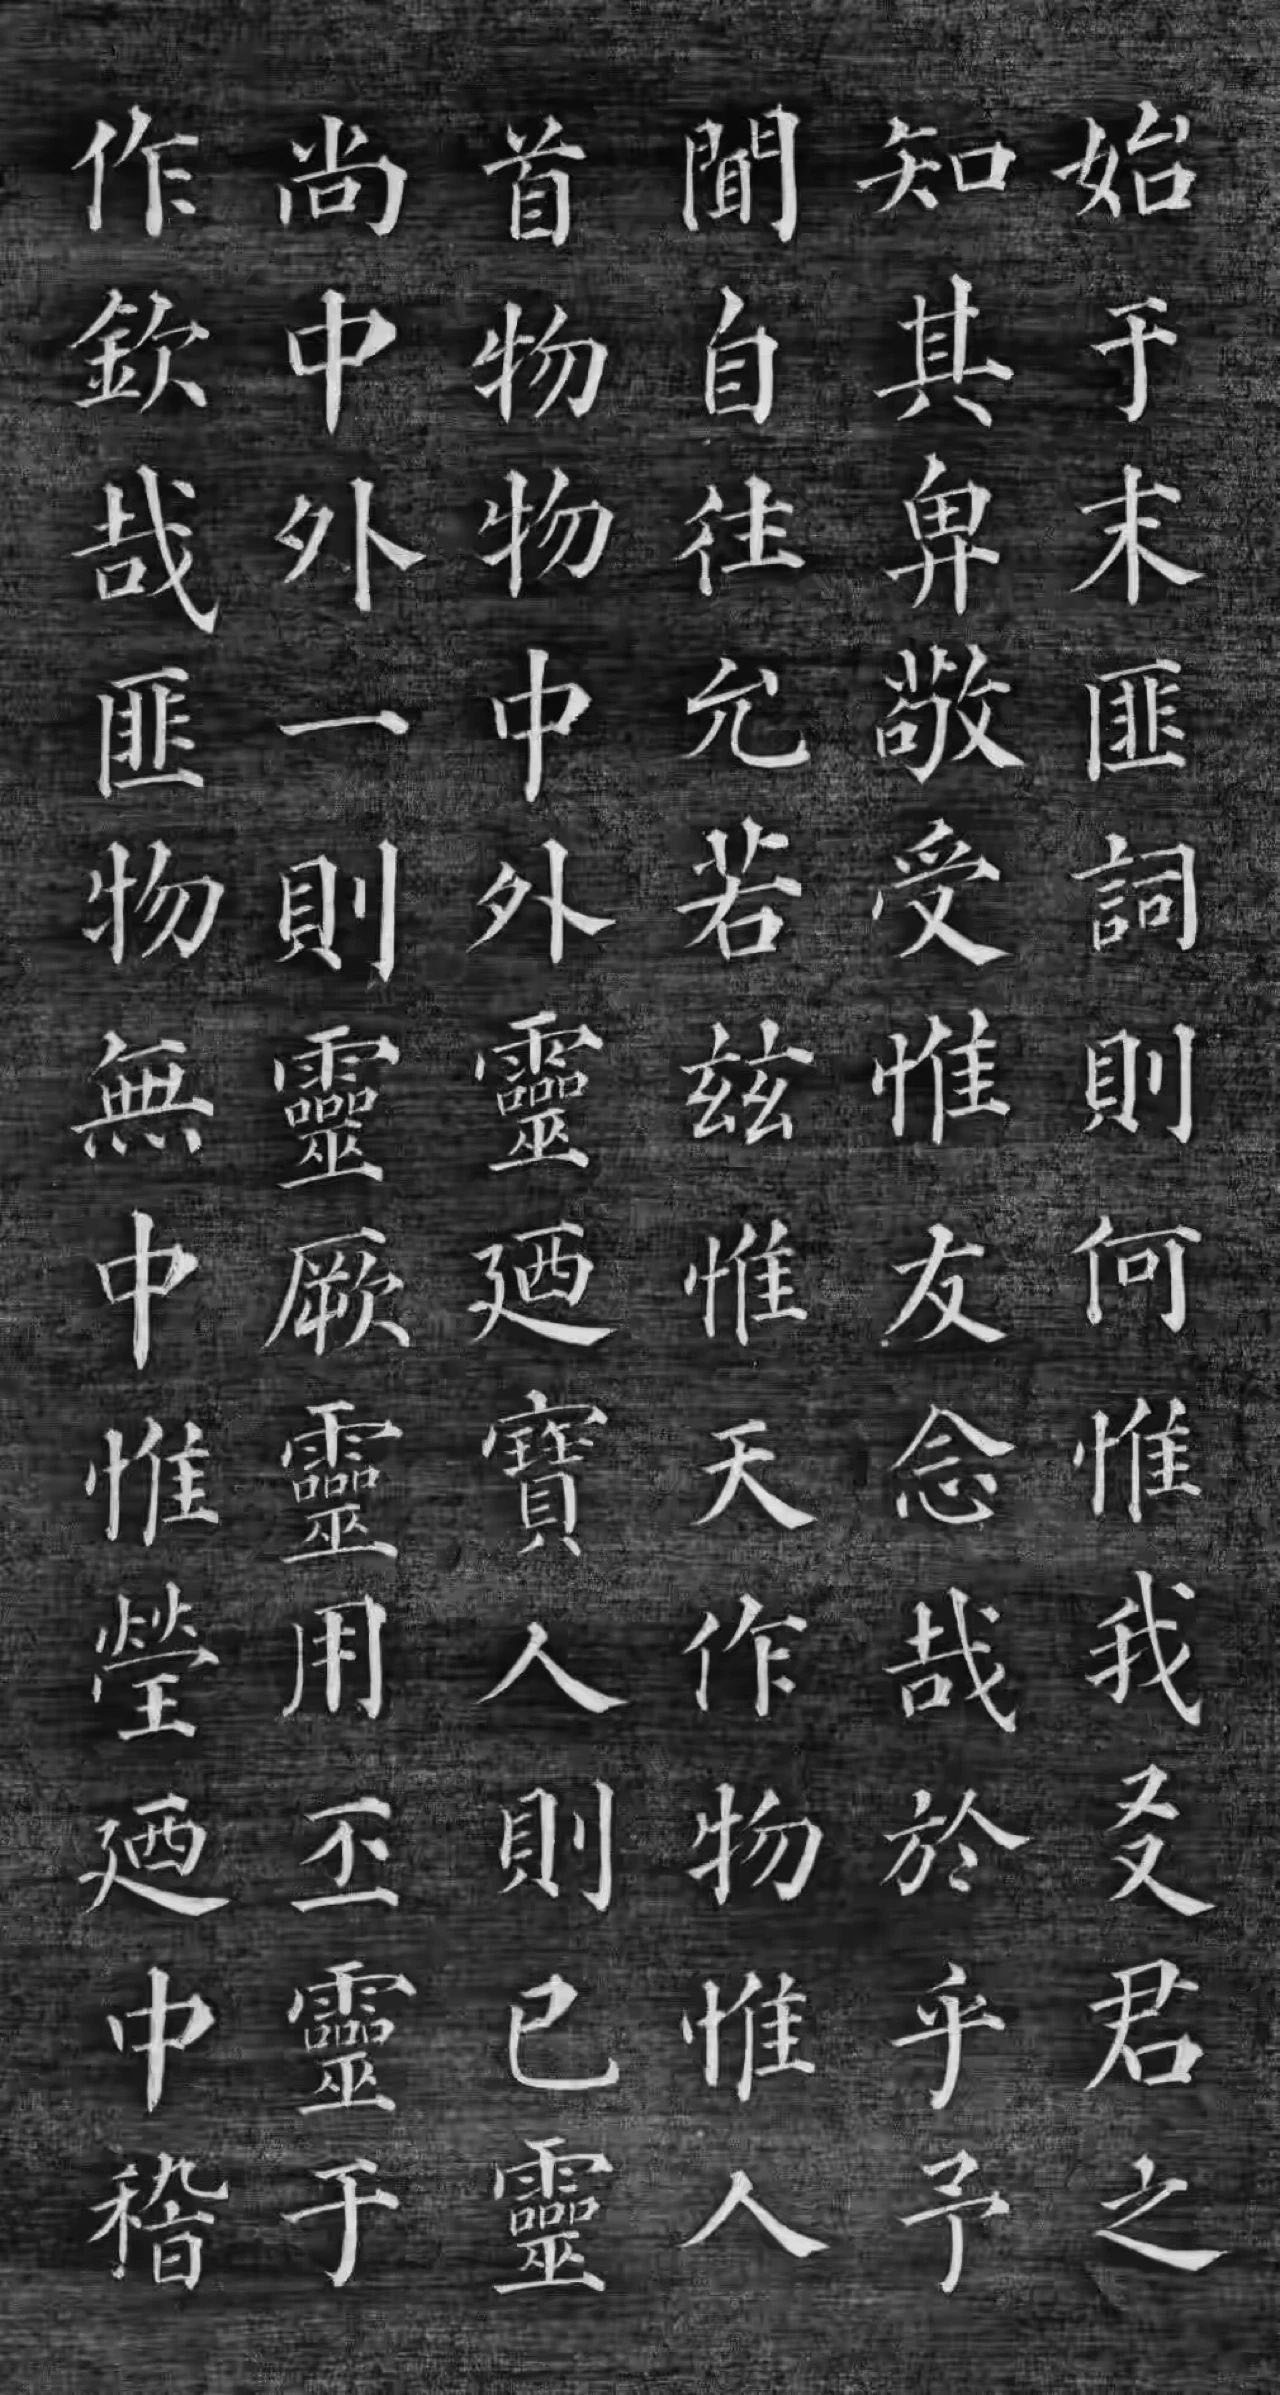 始于末匪詞則何惟我㕛君之
知其卑敬受惟友念哉於乎予
聞自往允若茲惟天作物惟人
首物物中外靈廼寶人則已靈
尚中外一則靈厥靈用丕靈于
作欽哉匪物無中惟瑩廼中稽